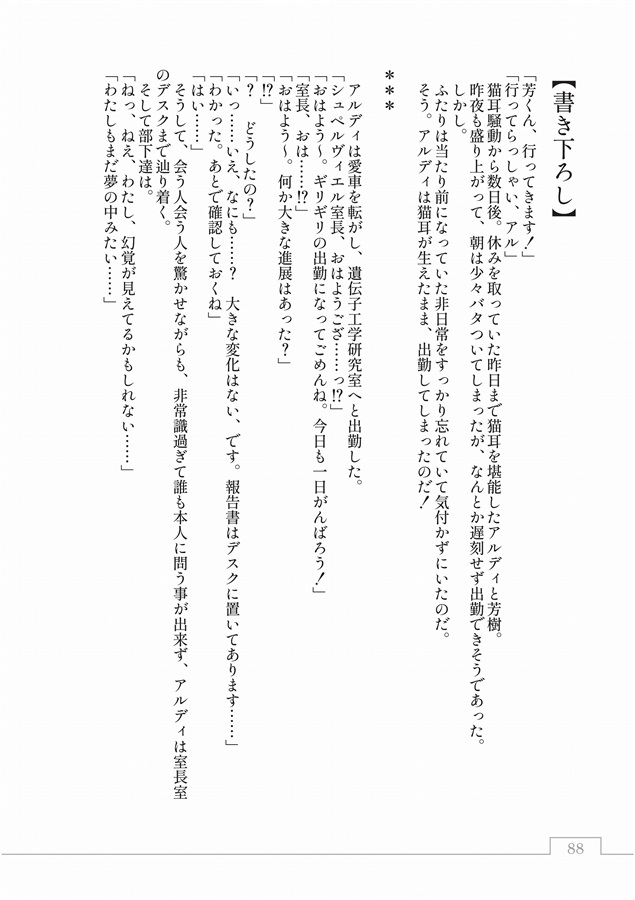 【書き下ろし】
「芳くん、行ってきます！」
「行ってらっしゃい、アル」
猫耳騒動から数日後。休みを取っていた昨日まで猫耳を堪能したアルディと芳樹。
昨夜も盛り上がって、朝は少々バタついてしまったが、なんとか遅刻せず出勤できそうであった。
しかし。
ふたりは当たり前になっていた非日常をすっかり忘れていて気付かずにいたのだ。
そう。アルディは猫耳が生えたまま、出勤してしまったのだ！
＊＊＊
アルディは愛車を転がし、遺伝子工学研究室へと出勤した。
「シュペルヴィエル室長、おはようござ……っ!?」
「おはよう〜。ギリギリの出勤になってごめんね。今日も一日がんばろう！」
「室長、おは……!?」
「おはよう〜。何か大きな進展はあった？」
「!?」
「？　どうしたの？」
「いっ……いえ、なにも……？　大きな変化はない、です。報告書はデスクに置いてあります……」
「わかった。あとで確認しておくね」
「はい……」
そうして、会う人会う人を驚かせながらも、非常識過ぎて誰も本人に問う事が出来ず、アルディは室長室
のデスクまで辿り着く。
そして部下達は。
「ねっ、ねえ、わたし、幻覚が見えてるかもしれない……」
「わたしもまだ夢の中みたい……」
88